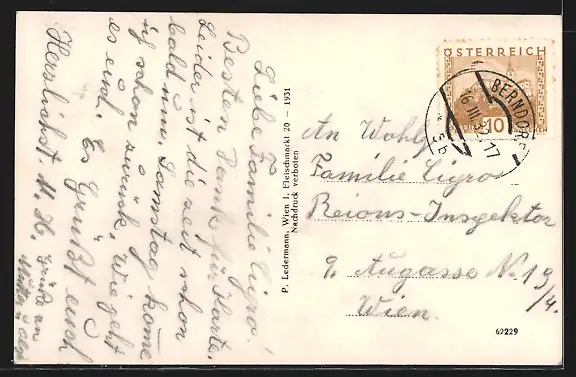 Liebe Familie Cigro!
Besten Dank für Karte.
Leider ist die zeit schon
bald um. Samstag kome
ich schon zurück. Wie geht
es eich. Es Grüßt euch
Herzlichst. M. H. Grüße an
P. Ledermann, Wien I. Fleischmarkt 20 – 1931
Nachdruck verboten
ÖSTERREICH
10
BERNDORF
16 III 32 17
5b
An Wohlg
Familie Cigro
Reions-Inspektor
9. Augasse No 19/4.
Wien.
62229